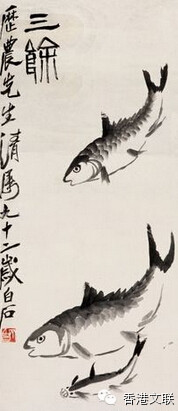 三餘
歷農先生清屬九十二歲白石
香港文联